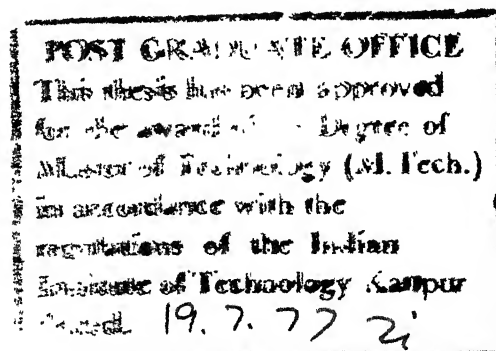 POST GRADUATE OFFICE
This thesis has been approved
for the award of the Degree of
Master of Technology (M. Tech.)
in accordance with the
regulations of the Indian
Institute of Technology Kanpur
Dated. 19.7.77